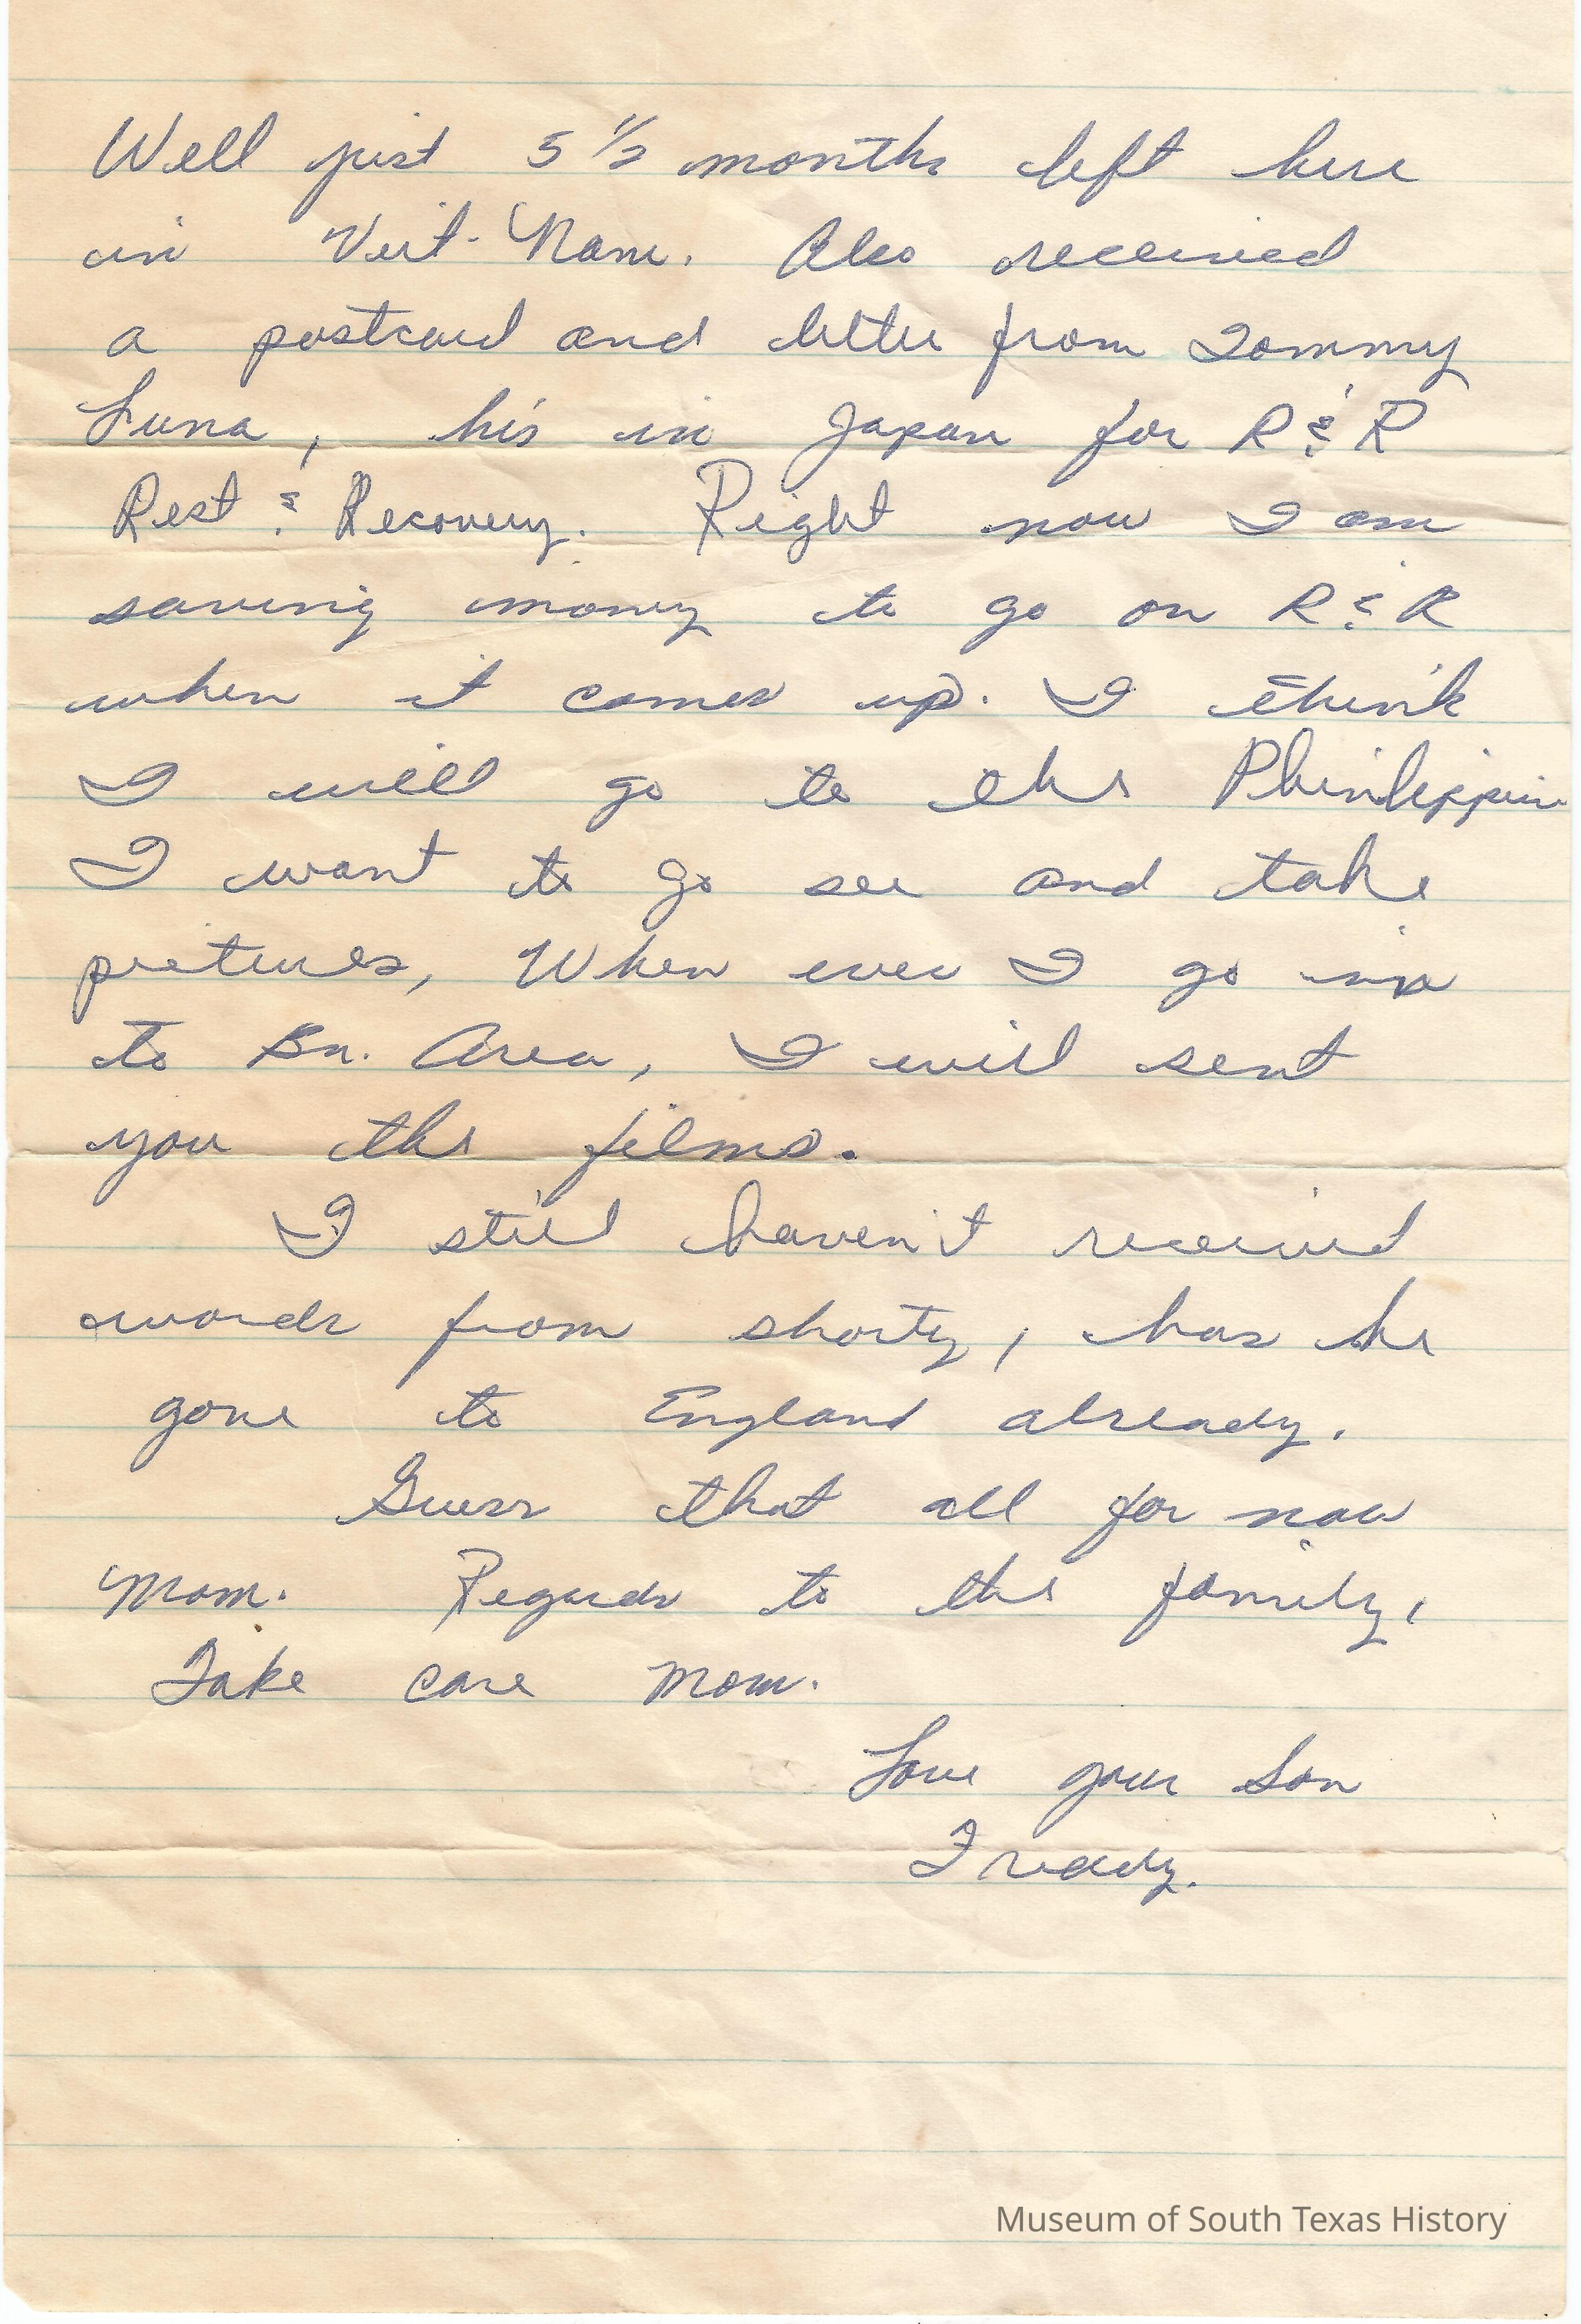 Well just 5 1/2 months left here
in Viet-Nam. Also received
a postcard and letter from Tommy
Luna, his in Japan for R & R
Rest & Recovery. Right now I am
saving money to go on R & R
when it comes up. I think
I will go to the
I want to go see and take
pictures, When ever I go in
to Bn. Area, I will sent
you the films.
I still haven't received
words from shorty, has he
gone to England already.
Guess that all for now
Mom. Regards to the family,
Take care Mom.
Love your Son
Freddy.
Museum of South Texas History